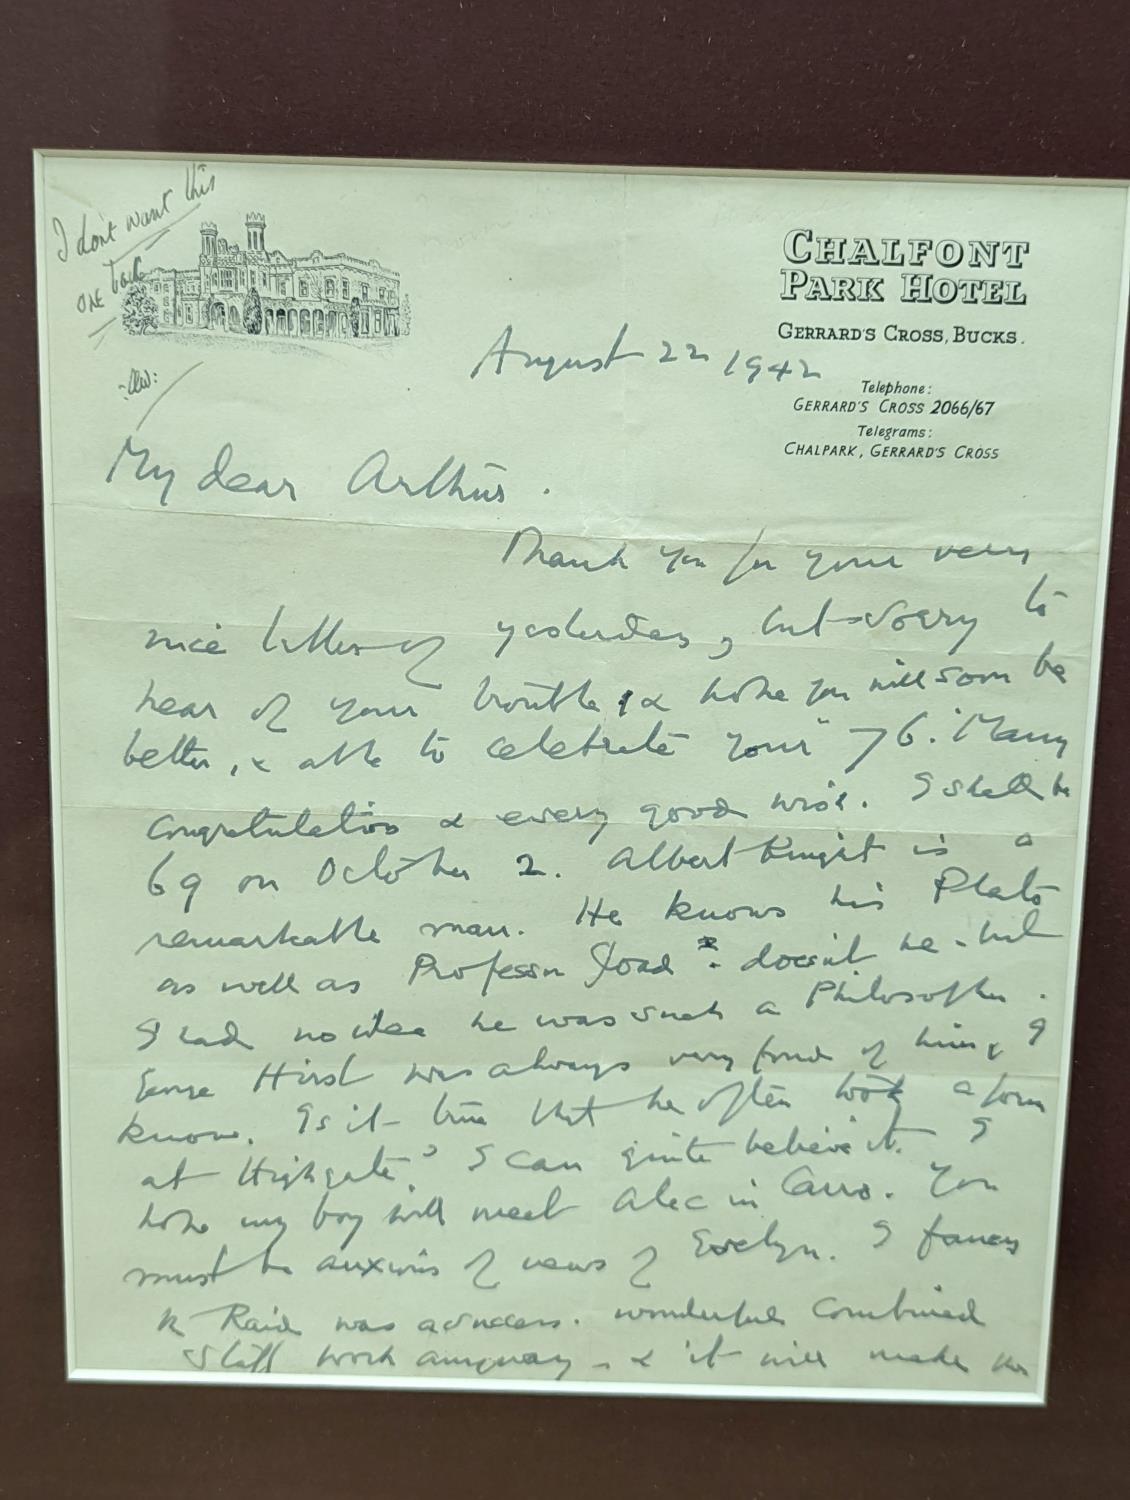 I don't want this
one back
AW:
CHALFONT
PARK HOTEL
GERRARD'S CROSS, BUCKS.
Telephone:
GERRARD'S CROSS 2066/67
Telegrams:
CHALPARK, GERRARD'S CROSS
August 22 1942
My dear Arthur.
Thank you for your very
nice letter of yesterday, but sorry to
hear of your trouble, & hope you will soon be
better, & able to celebrate your "76." Many
congratulations & every good wish. I shall be
69 on October 2. Albert Knight is a
remarkable man. He knows his Plato
as well as Professor Joad - doesn't he - but
I had no idea he was such a Philosopher.
George Hirst was always very fond of him, I
know. Is it true that he often took a form
at Highgate? I can quite believe it. I
hope my boy will meet Alec in Cairo. You
must be anxious of news of Evelyn. I fancy
the Raid was a success. wonderful combined
Staff work anyway - & it will make the